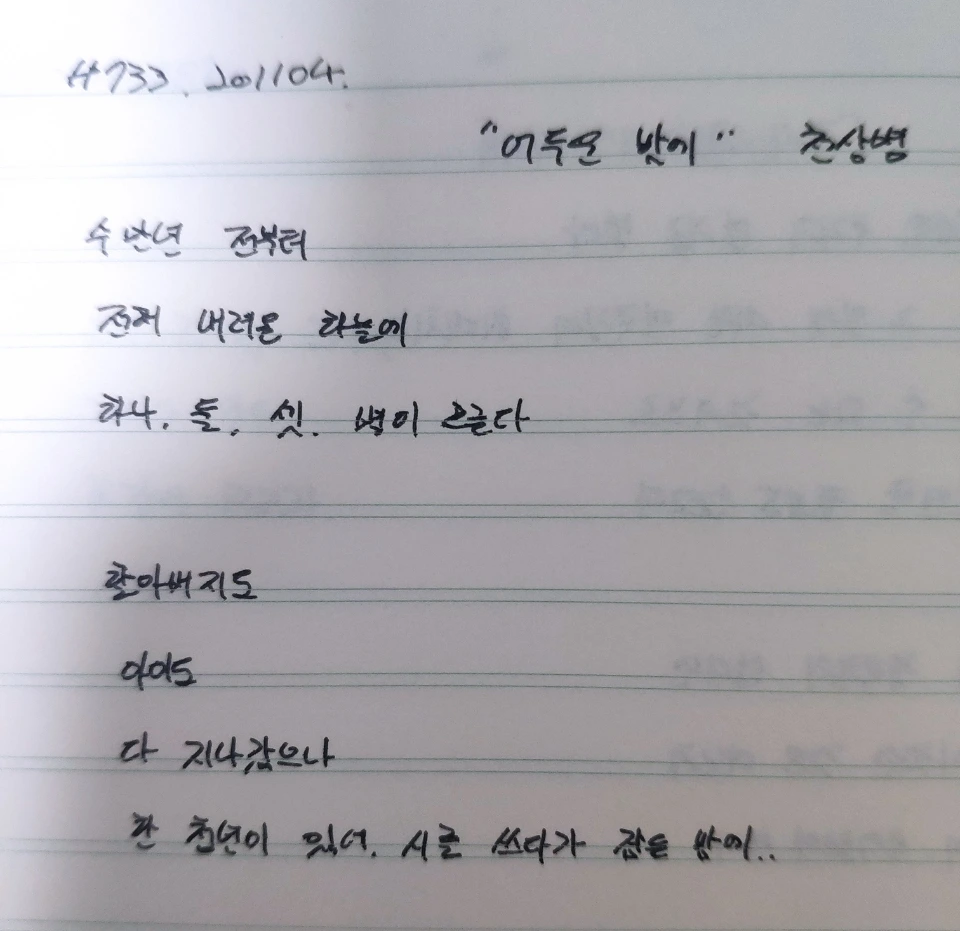 #733. 201104.
"어두운 밤에" 천상병
수만년 전부터
전해 내려온 하늘에
하나, 둘, 셋, 별이 흐른다
할아버지도
아이도
다 지나갔으나
한 청년이 있어, 시를 쓰다가 잠든 밤에..